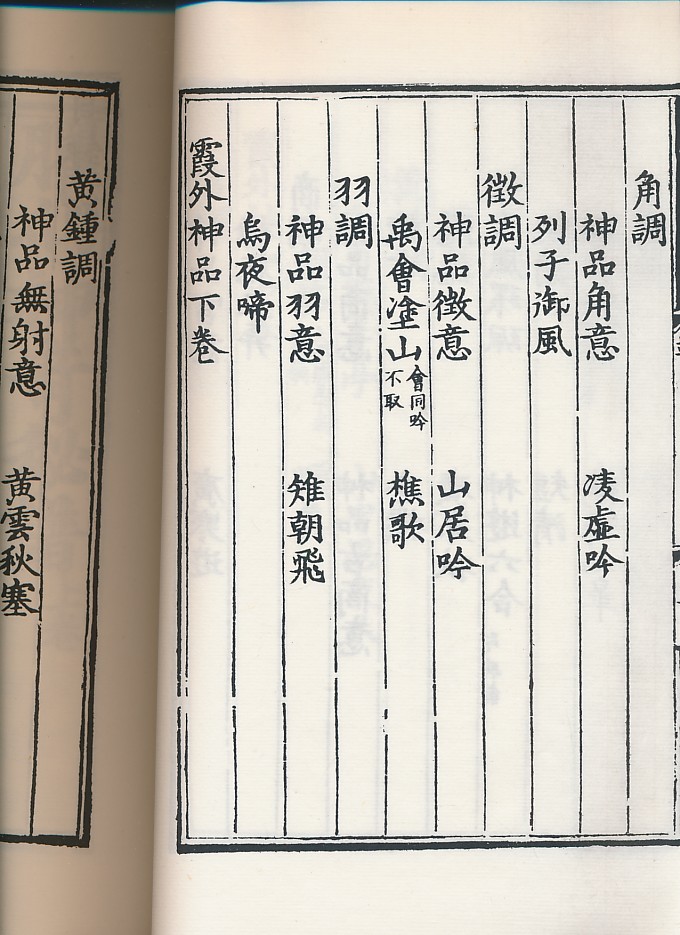 角調
神品角意　凌虛吟
列子御風
徵調
神品徵意　山居吟
禹會塗山會同吟不取　樵歌
羽調
神品羽意　雉朝飛
烏夜啼
霞外神品下卷
黃鍾調
神品無射意　黃雲秋塞